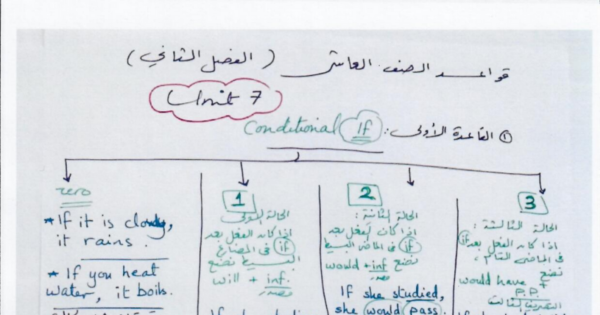 قواعد الصف العاشر (الفصل الثاني)
Unit 7
① القاعدة الأولى: Conditional If
zero
* If it is cloudy,
it rains.
* If you heat
water, it boils.
1
الحالة الأولى
اذا كان الفعل بعد
if في المضارع
البسيط نضع
will + inf.
مصدر
2
الحالة الثانية:
اذا كان الفعل بعد
if في الماضي البسيط
نضع
would + inf
مصدر
If she studied,
she would pass.
3
الحالة الثالثة:
اذا كان الفعل بعد if
في الماضي التام،
نضع
would have +
P.P.
التصريف الثالث